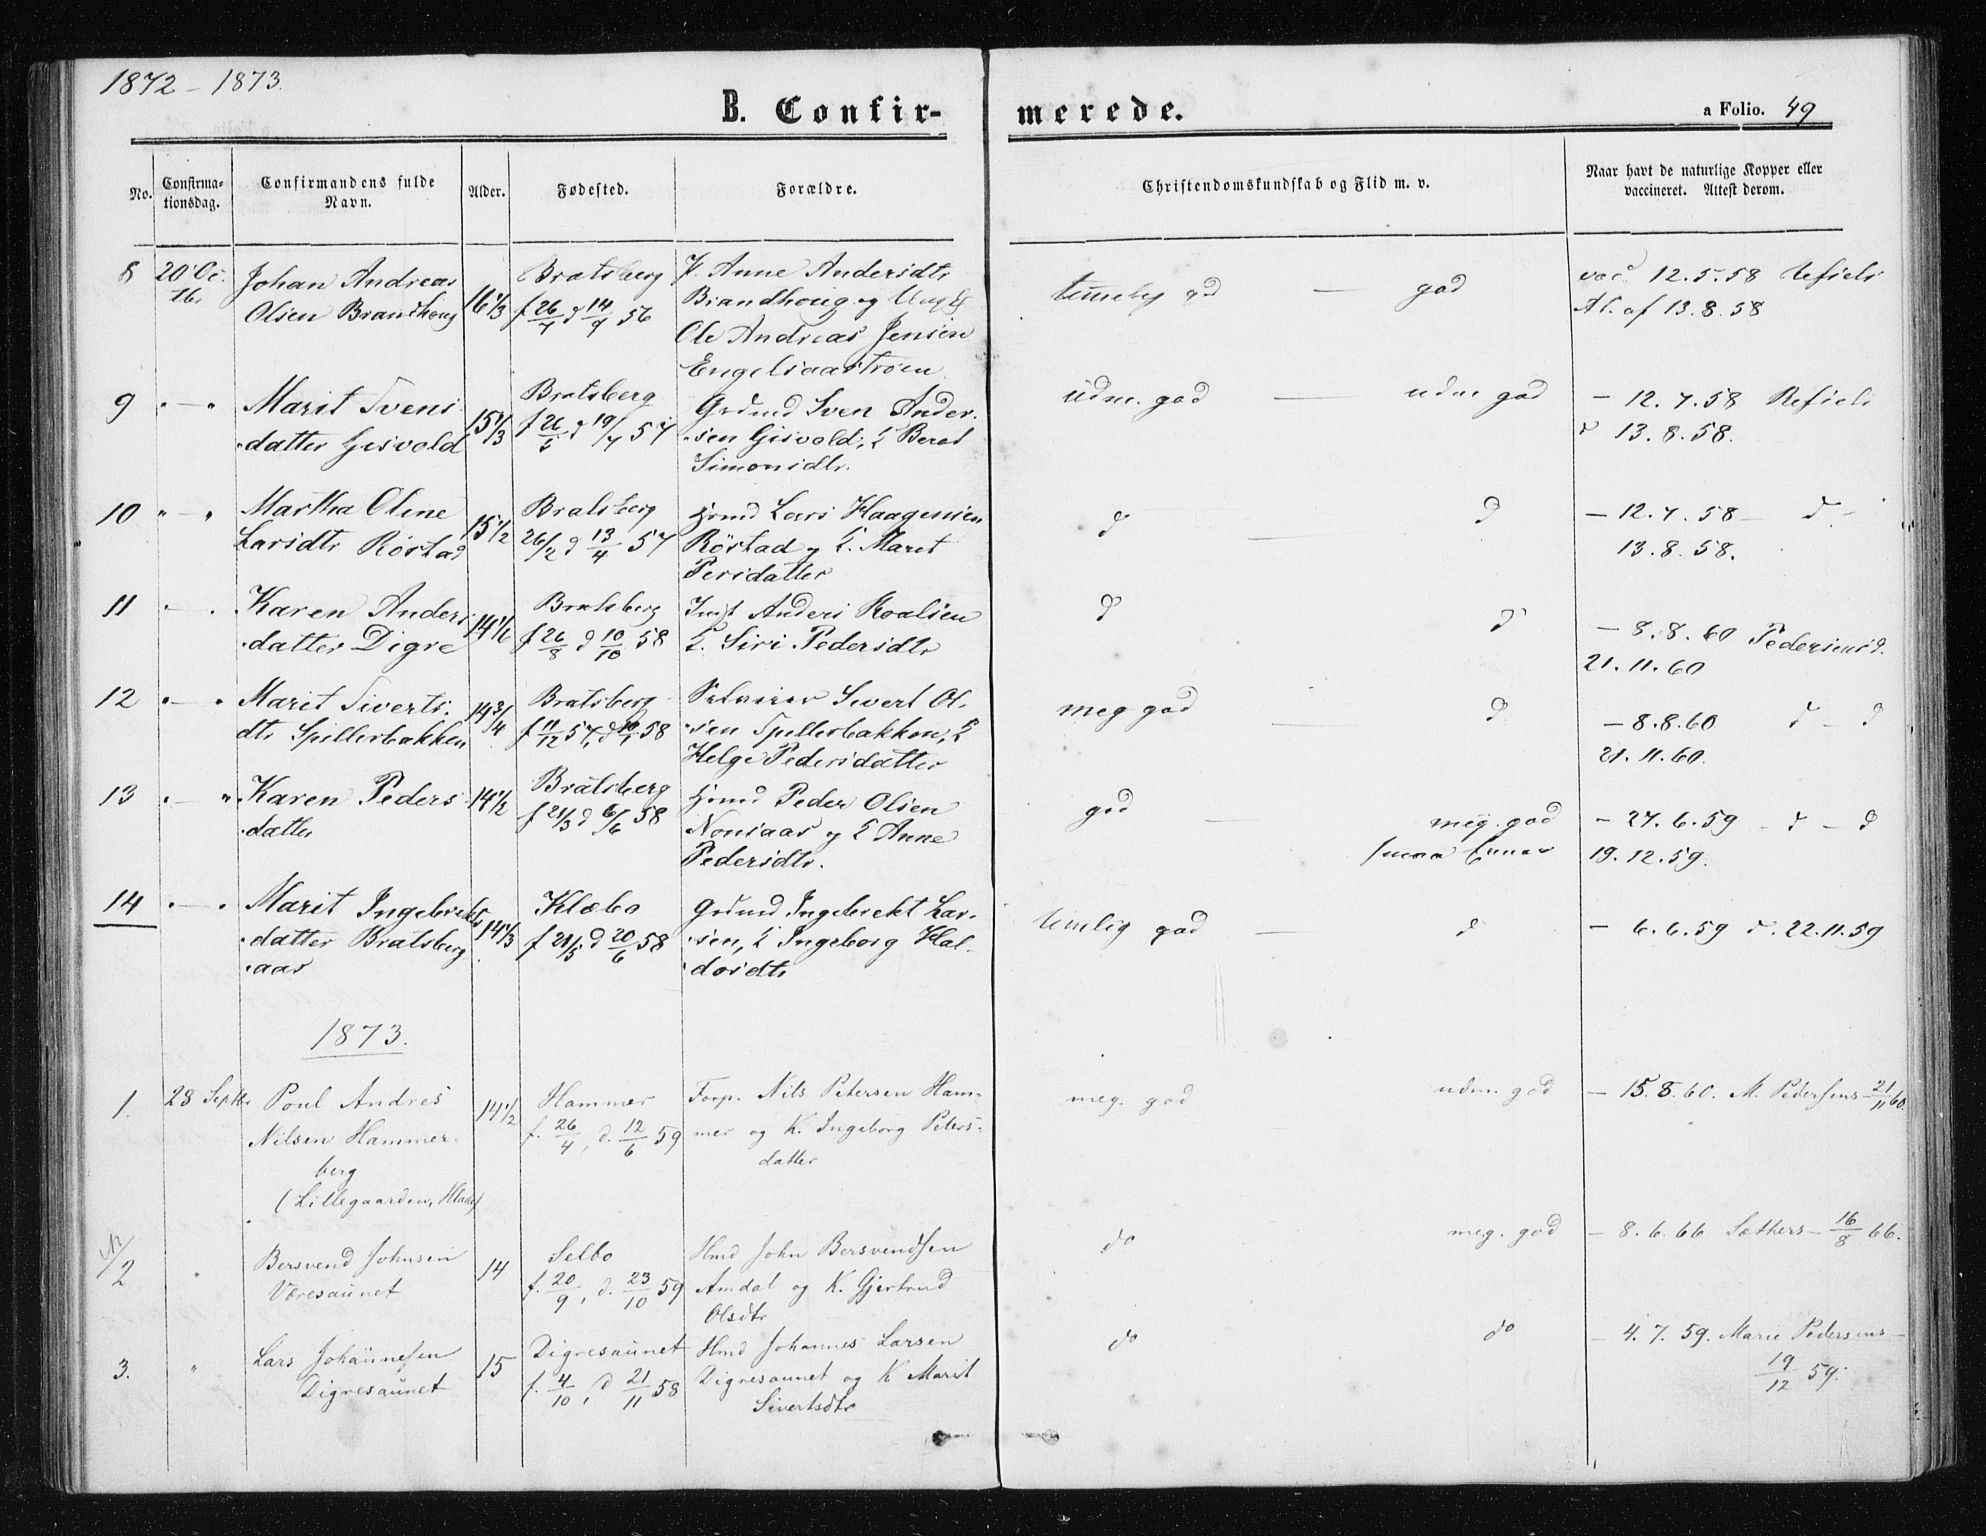 1872 - 1873.
B. Confirmerede.
a Folio. 49
No.
Confirma-
tionsdag.
Confirmandens fulde
Navn.
Alder.
Fødested.
Forældre.
Christendomskundskab og Flid m. v.
Naar havt de naturlige Kopper eller
vaccineret. Attest derom.
8 20 Oc
Johan Andreas
Olsen Brandhoug
16 1/3
Bratsberg
f 26/7 d 14/9 56
P. Anne Andersdtr
Brandhoug og Ungk
Ole Andreas Jensen
Engelsaastrøen
god
vac. 12.5.58 Refiels
At. af 13.8.58
9 " - "
Marit Svens
datter Gisvold
15 1/3
Bratsberg
f 26/5 d 19/7 57
Grdmd Sven Ander-
sen Gisvold, K Beret
Simonsdtr.
udm. god — udm god
- 12.7.58 Refiels
d 13.8.58.
10 " - "
Martha Oline
Larsdtr Rørstad
15 1/2
Bratsberg
26/2 d 13/4 57
Hsmd Lars Haagensen
Rørstad og K. Maret
Persdatter
d — d
- 12.7.58 - d -
13.8.58.
11 " - "
Karen Anders
datter Digre
14 1/6
Bratsberg
f 26/8 d 10/10 58
Inst Anders Roalsen
K. Siri Pedersdtr
d d
- 8.8.60 Pedersens d.
21.11.60
12 " - "
Marit Siverts
dtr Spillerbakken
14 3/4
Bratsberg
f 11/12 57, d 10/1 58
Selveier Sivert Ol-
sen Spillerbakken, K
Helge Pedersdatter
meg god — d
- 8.8.60 d - d
21.11.60.
13 " - "
Karen Peders
datter
14 1/2
Bratsberg
f 21/3 d 6/6 58
Hsmd Peder Olsen
Nonsaas og K Anne
Pedersdtr.
god — meg. god
- 27.6.59 - d - d
19.12.59.
14 " - "
Marit Ingebrekts
datter Bratsberg
aas
14 1/3
Klæbo
f 21/5 d 20/6 58
Grdmd Ingebrekt Lar-
sen, K Ingeborg Hal-
dorsdtr
temlig god — d
- 6.6.59 d. 22.11.59
1873.
1. 28 Septbr
Poul Andres
Nilsen Hammer-
berg
(Lillegaarden,
14 1/2
Hammer
f. 26/4, d. 12/6 59
Forp. Nils Petersen Ham-
mer og K. Ingeborg Peters-
datter
meg. god udm. god
- 15.8.60. M. Pedersens 21/11 60.
2 "
Bersvend Johnsen
Væresaunet
14
Selbo
f. 20/9, d. 23/10 59
Hmd John Bersvendsen
Amdal og K. Gjertrud
Olsdtr
do — meg. god
- 8.6.66 Sæthers - 16/8 66.
3. "
Lars Johannesen
Digresaunet
15
Digresaunet
f. 4/10, d 21/11 58
Hmd Johannes Larsen
Digresaunet og K Marit
Sivertsdtr
do do
- 4.7.59. Marie Pedersens -
19/12 59.